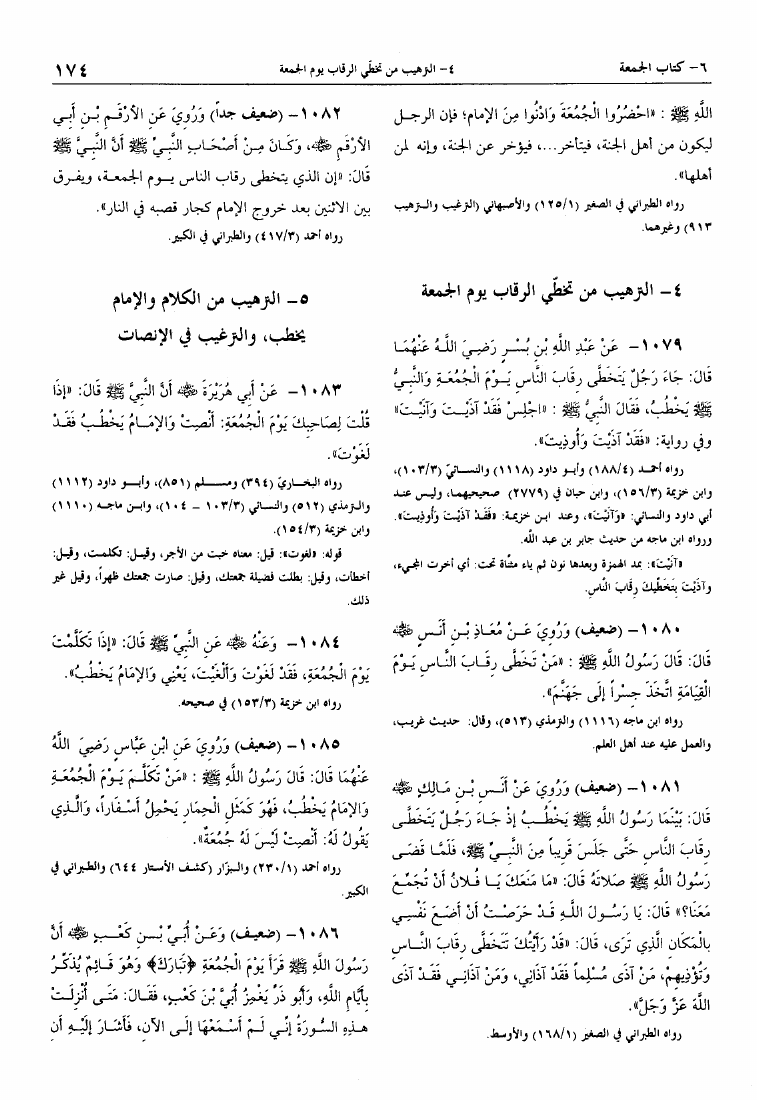 ٦- كتاب الجمعة
٤- الترهيب من تخطّي الرقاب يوم الجمعة
١٧٤
اللَّهِ ﷺ : «احْضُرُوا الْجُمُعَةَ وَادْنُوا مِنَ الإمام؛ فإن الرجل
ليكون من أهل الجنة، فيتأخر...، فيؤخر عن الجنة، وإنه لمن
أهلها».
رواه الطبراني في الصغير (١٢٥/١) والأصبهاني (الترغيب والترهيب
٩١٣) وغيرهما.
٤- الترهيب من تخطّي الرقاب يوم الجمعة
١٠٧٩- عَنْ عَبْدِ اللَّهِ بْنِ بُسْرٍ رَضِيَ اللَّهُ عَنْهُمَا
قَالَ: جَاءَ رَجُلٌ يَتَخَطَّى رِقَابَ النَّاسِ يَوْمَ الْجُمُعَةِ وَالنَّبِيُّ
ﷺ يَخْطُبُ، فَقَالَ النَّبِيُّ ﷺ : «اجْلِسْ فَقَدْ آذَيْتَ وَآنَيْتَ»
وفي رواية: «فَقَدْ آذَيْتَ وَأُوذِيتَ».
رواه أحمد (١٨٨/٤) وأبو داود (١١١٨) والنسائيّ (١٠٣/٣)،
وابن خزيمة (١٥٦/٣)، وابن حبان في (٢٧٧٩) صحيحيهما، وليس عند
أبي داود والنسائي: «وَآنَيْتَ»، وعند ابن خزيمة: «فَقَدْ آذَيْتَ وَأُوذِيتَ».
ورواه ابن ماجه من حديث جابر بن عبد الله.
«آنَيْتَ»: بمد الهمزة وبعدها نون ثم ياء مثنَّاة تحت: أي أخرت المجيء،
وَآذَيْتَ بِتَخَطِّيكَ رِقَابَ النَّاسِ.
١٠٨٠- (ضعيف) وَرُوِيَ عَنْ مُعَاذِ بْنِ أَنَسٍ ﷺ
قَالَ: قَالَ رَسُولُ اللَّهِ ﷺ : «مَنْ تَخَطَّى رِقَابَ النَّاسِ يَوْمَ
الْقِيَامَةِ اتَّخَذَ جِسْراً إِلَى جَهَنَّمَ».
رواه ابن ماجه (١١١٦) والترمذي (٥١٣)، وقال: حديث غريب،
والعمل عليه عند أهل العلم.
١٠٨١- (ضعيف) وَرُوِيَ عَنْ أَنَسِ بْنِ مَالِكٍ ﷺ
قَالَ: بَيْنَمَا رَسُولُ اللَّهِ ﷺ يَخْطُبُ إِذْ جَاءَ رَجُلٌ يَتَخَطَّى
رِقَابَ النَّاسِ حَتَّى جَلَسَ قَرِيباً مِنَ النَّبِيِّ ﷺ، فَلَمَّا قَضَى
رَسُولُ اللَّهِ ﷺ صَلاَتَهُ قَالَ: «مَا مَنَعَكَ يَا فُلاَنُ أَنْ تُجَمِّعَ
مَعَنَا؟» قَالَ: يَا رَسُولَ اللَّهِ قَدْ حَرَصْتُ أَنْ أَضَعَ نَفْسِي
بِالْمَكَانِ الَّذِي تَرَى، قَالَ: «قَدْ رَأَيْتُكَ تَتَخَطَّى رِقَابَ النَّاسِ
وَتُؤْذِيهِمْ، مَنْ آذَى مُسْلِماً فَقَدْ آذَانِي، وَمَنْ آذَانِي فَقَدْ آذَى
اللَّهَ عَزَّ وَجَلَّ».
رواه الطبراني في الصغير (١٦٨/١) والأوسط.
١٠٨٢- (ضعيف جداً) وَرُوِيَ عَنِ الأَرْقَمِ بْنِ أَبِي
الأَرْقَمِ ﷺ، وَكَانَ مِنْ أَصْحَابِ النَّبِيِّ ﷺ أَنَّ النَّبِيَّ ﷺ
قَالَ: «إن الذي يتخطى رقاب الناس يوم الجمعة، ويفرق
بين الاثنين بعد خروج الإمام كجار قصبه في النار».
رواه أحمد (٤١٧/٣) والطبراني في الكبير.
٥- الترهيب من الكلام والإمام
يخطب، والترغيب في الإنصات
١٠٨٣- عَنْ أَبِي هُرَيْرَةَ ﷺ أَنَّ النَّبِيَّ ﷺ قَالَ: «إِذَا
قُلْتَ لِصَاحِبِكَ يَوْمَ الْجُمُعَةِ: أَنْصِتْ وَالإِمَامُ يَخْطُبُ فَقَدْ
لَغَوْتَ».
رواه البخاريّ (٣٩٤) ومسلم (٨٥١)، وأبو داود (١١١٢)
والترمذي (٥١٢) والنسائي (١٠٣/٣ - ١٠٤)، وابن ماجه (١١١٠)
وابن خزيمة (١٥٤/٣).
قوله: «لغوت»: قيل: معناه خبت من الأجر، وقيل: تكلمت، وقيل:
أخطأت، وقيل: بطلت فضيلة جمعتك، وقيل: صارت جمعتك ظهراً، وقيل غير
ذلك.
١٠٨٤- وَعَنْهُ ﷺ عَنِ النَّبِيِّ ﷺ قَالَ: «إِذَا تَكَلَّمْتَ
يَوْمَ الْجُمُعَةِ، فَقَدْ لَغَوْتَ وَأَلْغَيْتَ، يَعْنِي وَالإِمَامُ يَخْطُبُ».
رواه ابن خزيمة (١٥٣/٣) في صحيحه.
١٠٨٥- (ضعيف) وَرُوِيَ عَنِ ابْنِ عَبَّاسٍ رَضِيَ اللَّهُ
عَنْهُمَا قَالَ: قَالَ رَسُولُ اللَّهِ ﷺ : «مَنْ تَكَلَّمَ يَوْمَ الْجُمُعَةِ
وَالإِمَامُ يَخْطُبُ، فَهُوَ كَمَثَلِ الْحِمَارِ يَحْمِلُ أَسْفَاراً، وَالَّذِي
يَقُولُ لَهُ: أَنْصِتْ لَيْسَ لَهُ جُمُعَةٌ».
رواه أحمد (٢٣٠/١) والبزّار (كشف الأستار ٦٤٤) والطبراني في
الكبير.
١٠٨٦- (ضعيف) وَعَنْ أُبَيِّ بْنِ كَعْبٍ ﷺ أَنَّ
رَسُولَ اللَّهِ ﷺ قَرَأَ يَوْمَ الْجُمُعَةِ ﴿تَبَارَكَ﴾ وَهُوَ قَائِمٌ يُذَكِّرُ
بِأَيَّامِ اللَّهِ، وَأَبُو ذَرٍّ يَغْمِزُ أُبَيَّ بْنَ كَعْبٍ، فَقَالَ: مَتَى أُنْزِلَتْ
هذِهِ السُّورَةُ إِنِّي لَمْ أَسْمَعْهَا إِلَى الآنَ، فَأَشَارَ إِلَيْهِ أَنِ